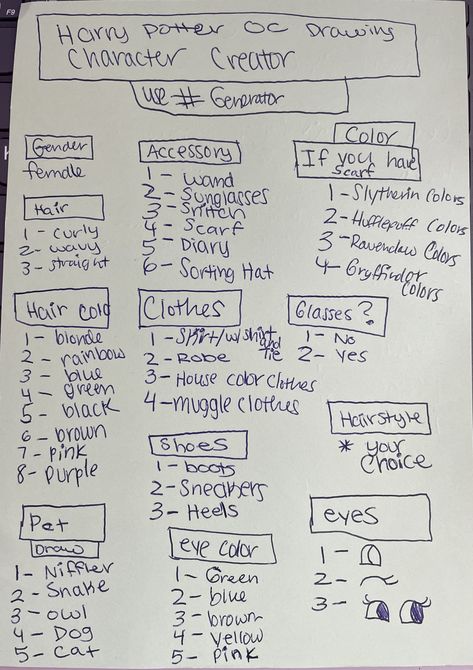 F9
Harry Potter OC Drawing
Character Creator
use # Generator
Gender
female
Hair
1 - curly
2 - wavy
3 - straight
Hair Color
1 - blonde
2 - rainbow
3 - blue
4 - green
5 - black
6 - brown
7 - pink
8 - Purple
Pet
Draw
1 - Niffler
2 - Snake
3 - owl
4 - Dog
5 - Cat
Accessory
1 - wand
2 - Sunglasses
3 - Snitch
4 - Scarf
5 - Diary
6 - Sorting Hat
Clothes
1 - Skirt/w/shirt and tie
2 - Robe
3 - House color clothes
4 - muggle clothes
Shoes
1 - boots
2 - Sneakers
3 - Heels
eye color
1 - Green
2 - blue
3 - brown
4 - yellow
5 - pink
Color
If you have
scarf
1 - Slytherin colors
2 - Hufflepuff Colors
3 - Ravenclaw Colors
4 - Gryffindor
colors
Glasses?
1 - No
2 - yes
Hairstyle
* your
choice
eyes
1 -
2 -
3 -